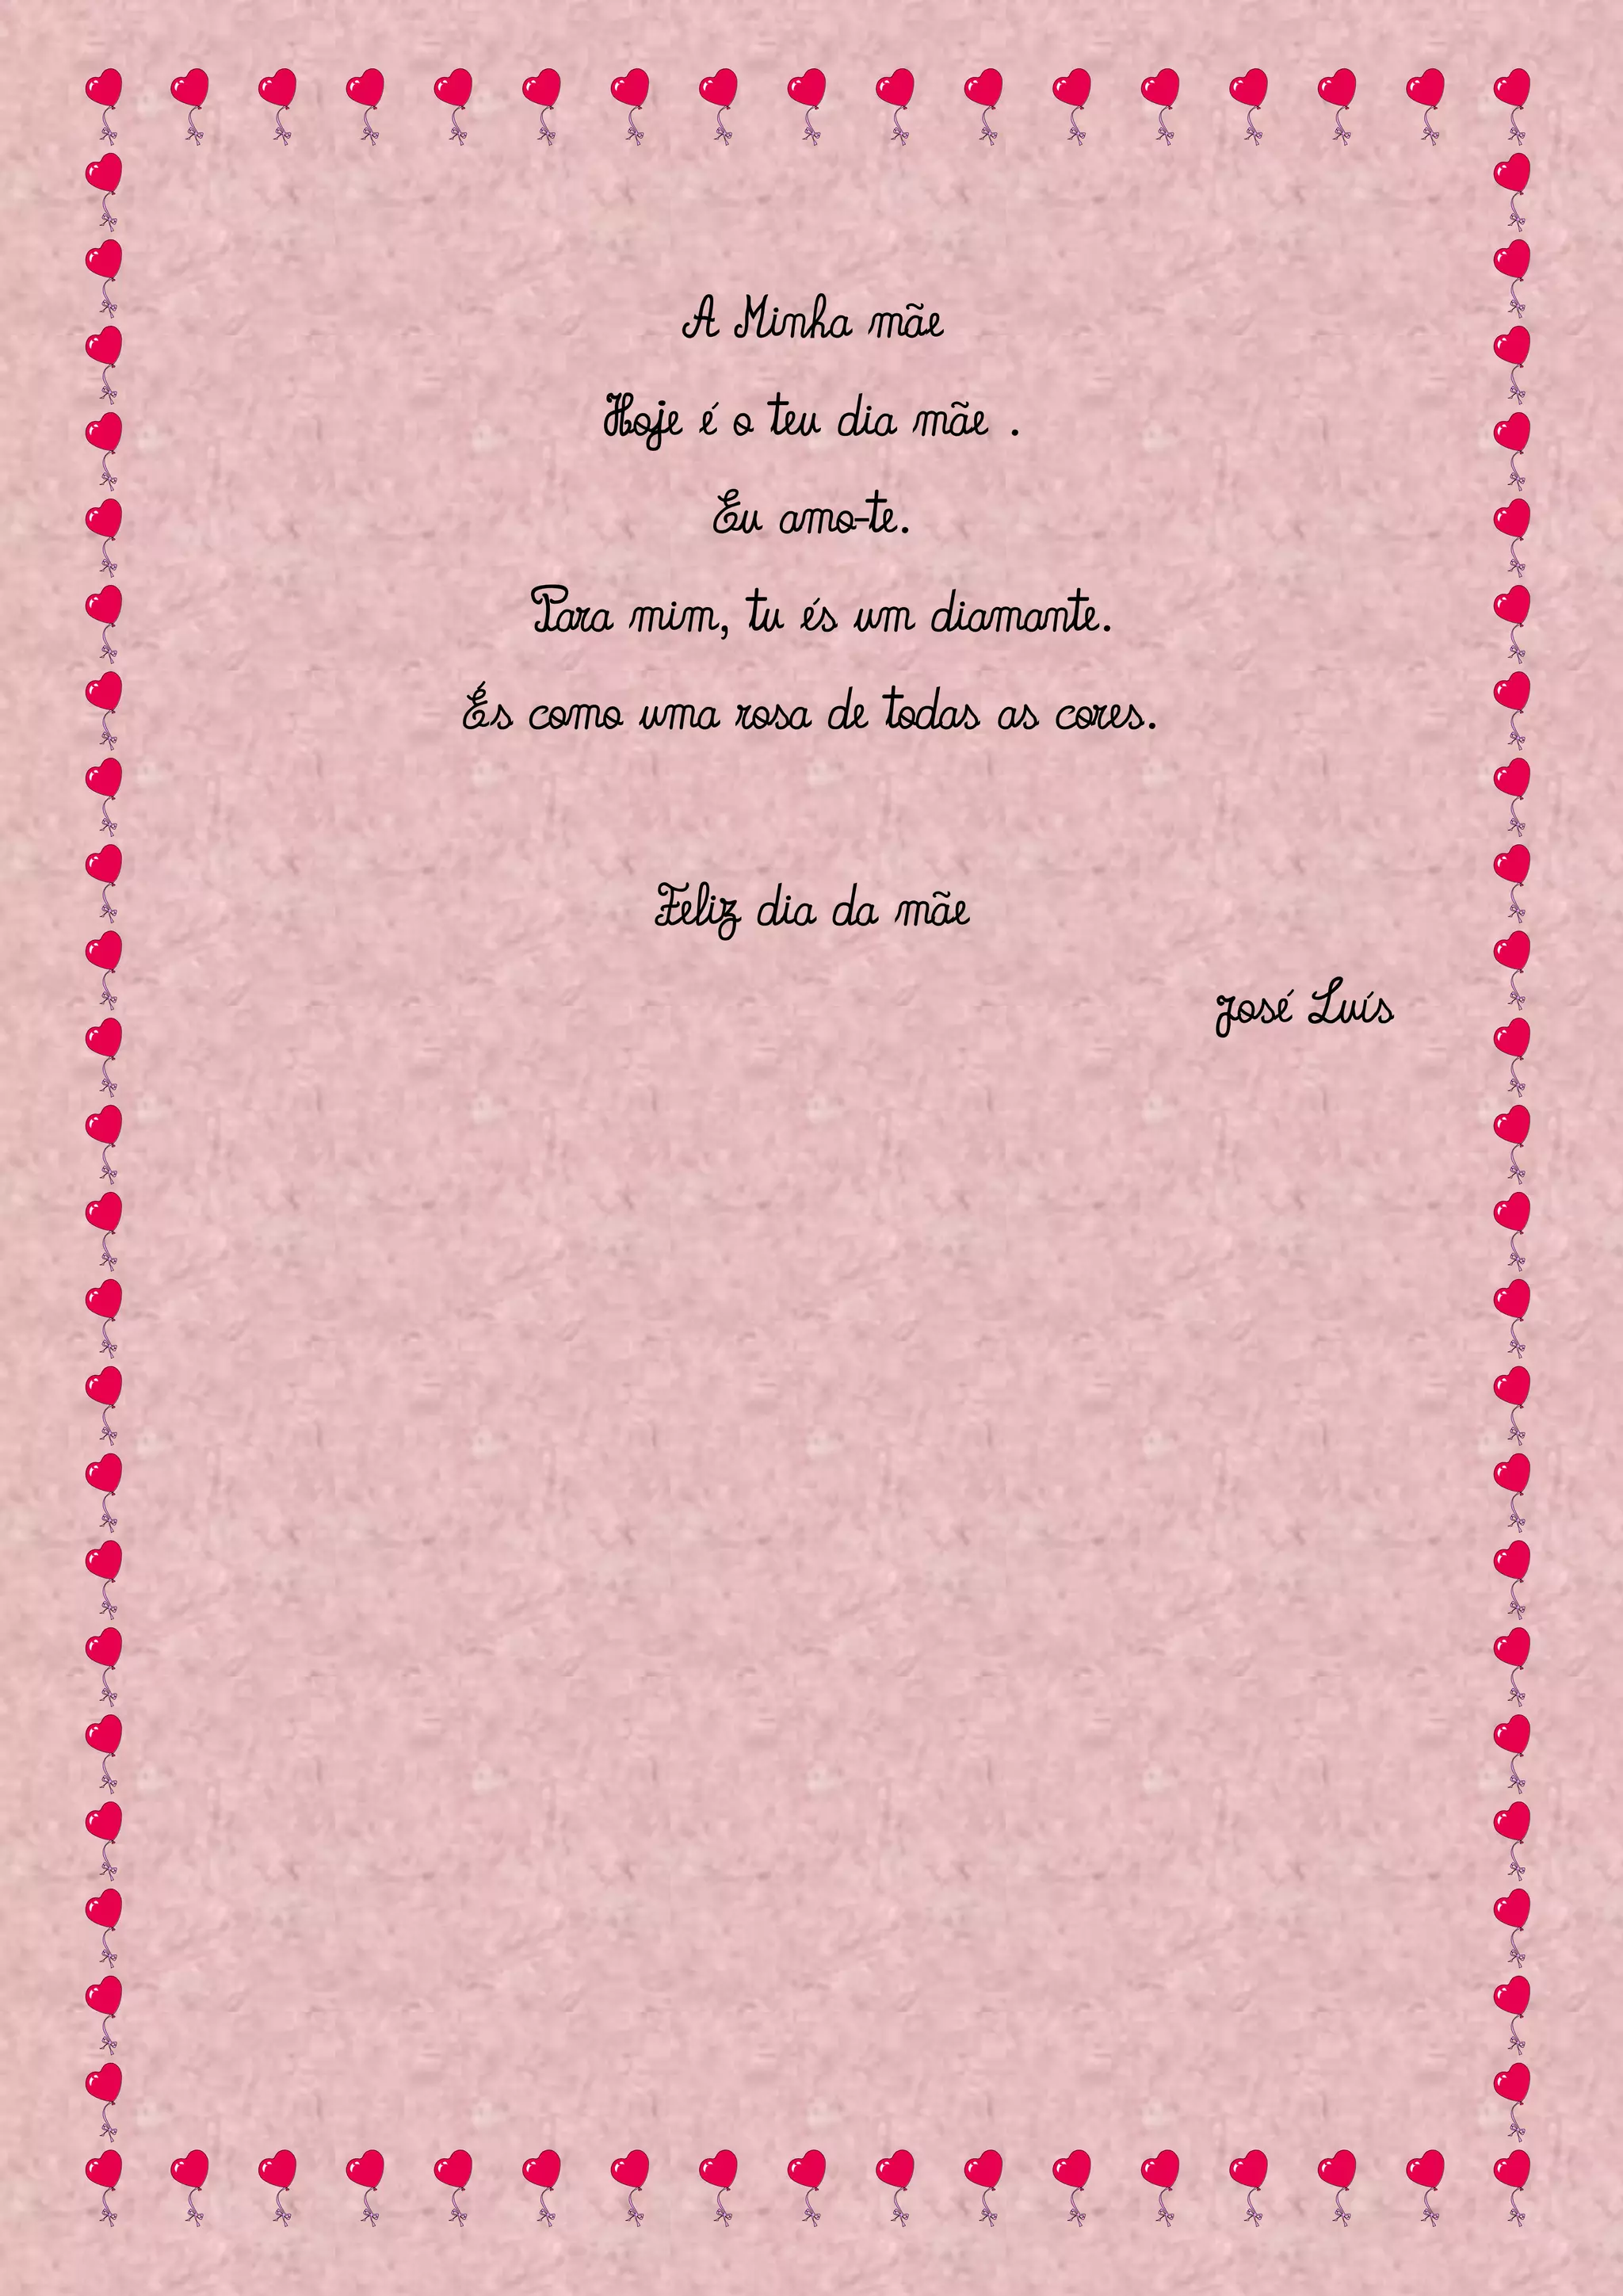 A Minha mãe
Hoje é o teu dia mãe .
Eu amo-te.
Para mim, tu és um diamante.
És como uma rosa de todas as cores.
Feliz dia da mãe
José Luís